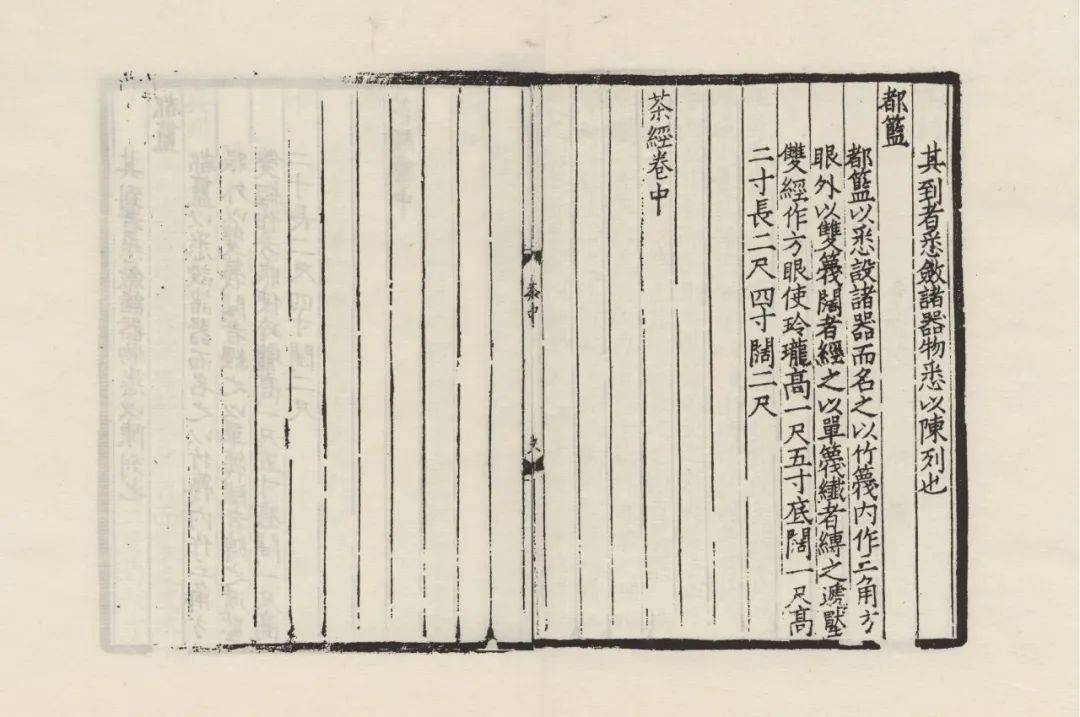 其到者悉斂諸器物悉以陳列也
都籃
都籃以悉設諸器而名之以竹篾内作三角方
眼外以雙篾闊者經之以單篾纖者縛之遞壓
雙經作方眼使玲瓏高一尺五寸底闊一尺高
二寸長二尺四寸闊二尺
茶經卷中
茶中